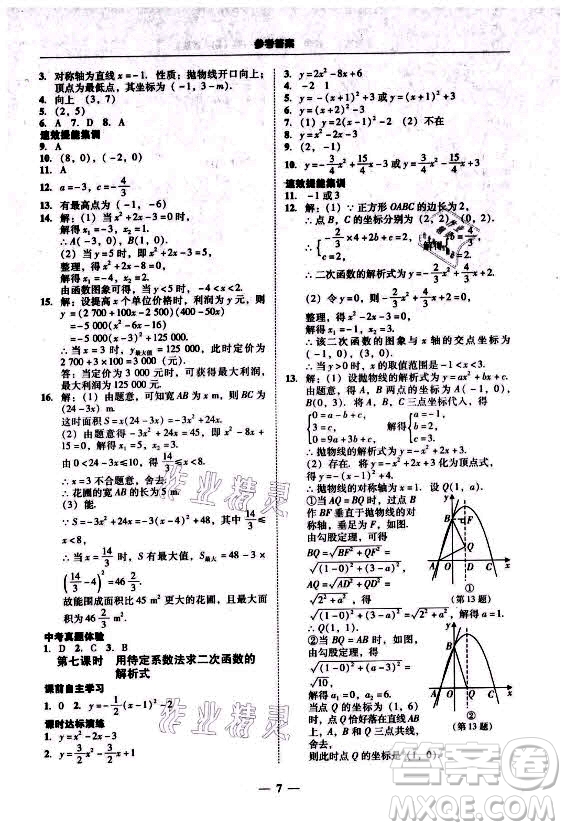 参考答案
3. 对称轴为直线 x=-1. 性质：抛物线开口向上；
顶点为最低点，其坐标为 (-1, -4).
4. 向上 (3, 7)
5. (2, 5)
6. A 7. D 8. A
速效提能集训
9. A
10. (8, 0), (-2, 0)
11. A
12. a=-3, c=-4/3
13. 有最高点为 (-1, -6)
14. 解：(1) 当 x²+2x-3=0 时，
解得 x₁=-3, x₂=1.
∴A(-3, 0), B(1, 0).
(2) 当 y=5 时，x²+2x-3=5,
整理，得 x²+2x-8=0,
解得 x₁=-4, x₂=2.
由函数图象可得，当 y<5 时，-4<x<2.
15. 解：设提高 x 个单位价格时，利润为 y 元，则
y=(2 700+100x-2 000)(400-50x)
=-5 000(x²-6x-16)
=-5 000(x-3)²+125 000,
∴当 x=3 时，y最大值=125 000, 此时定价为
2 700+3×100=3 000 (元).
答：当定价为 3 000 元时，可获得最大利润，
最大利润为 125 000 元.
16. 解：(1) 由题意，可知宽 AB 为 x m, 则 BC 为
(24-3x) m.
这时面积 S=x(24-3x)=-3x²+24x.
(2) 由题意得 -3x²+24x=45,
解得 x₁=5, x₂=3.
由 0<24-3x≤10, 得 14/3≤x<8,
∴x=3 不合题意，舍去.
∴花圃的宽 AB 的长为 5 m.
(3) 能.
∵S=-3x²+24x=-3(x-4)²+48, 14/3≤x
<8,
∴当 x=14/3 时，S 有最大值，S最大=48-3×
(14/3-4)²=46 2/3.
故能围成面积比 45 m² 更大的花圃，且最大面
积为 46 2/3 m².
中考真题体验
1. D 2. C 3. B
第七课时 用待定系数法求二次函数的
解析式
课前自主学习
1. 0 2. y=-1/2(x-1)²-2
课时达标演练
1. y=x²-2x-3
2. y=-3/2x²-3/2x+1
3. y=2x²-8x+6
4. -2 1
5. y=-(x+1)²-2
7. (1) y=-(x-1)²+4 (2) 不在
10. y=-3/4x²-15/4x-3 或 y=3/4x²+15/4x+3
速效提能集训
11. -1 或 3
12. 解：(1) ∵正方形 OABC 的边长为 2,
∴点 B, C 的坐标分别为 (2, 2), (0, 2),
解得 b=4/3,
∴二次函数的解析式为 y=-2/3x²+4/3x+2.
(2) 令 y=0, 则 -2/3x²+4/3x+2=0,
整理，得 x²-2x-3=0,
解得 x₁=-1, x₂=3,
∴该二次函数的图象与 x 轴的交点坐标为
(-1, 0), (3, 0).
∴当 y>0 时，x 的取值范围是 -1<x<3.
13. 解：(1) 设抛物线的解析式为 y=ax²+bx+c.
由题意，得 A, C 两点坐标为 A(-1, 0),
B(0, 3). 将 A, B, C 三点坐标代入，得
0=a-b+c, 0=9a+3b+c, 3=c, 解得 a=-1, b=2, c=3.
∴抛物线的解析式为 y=-x²+2x+3.
(2) 将抛物线 y=-x²+2x+3 化为顶点式，
得 y=-(x-1)²+4,
∴抛物线的对称轴为 x=1. 设 Q(1, a).
①当 AQ=BQ 时，过点 B
作 BF 垂直于抛物线的对
称轴，垂足为点 F.
由勾股定理，可得
BQ=√(BF²+QF²)=
√((1-0)²+(3-a)²),
AQ=√(AD²+QD²)=
√(2²+a²),
∴√(1-0)²+(3-a)²=√(2²+a²), 解得 a=1.
①
(第 13 题)
②当 BQ=AB 时，由勾股定
理，得
√((1-0)²+(3-a)²)=
√10,
解得 a=0 或 6.
当点 Q 的坐标为 (1, 6)
时，点 Q 恰好落在直线
AB 上，此时 A, B, Q 三点共线，
∴点 Q 的坐标为 (1, 6) 不合题意，舍去，
则此时点 Q 的坐标是 (1, 0).
②
(第 13 题)
— 7 —
作业精灵
作业精灵
答案圈
MXQE.COM